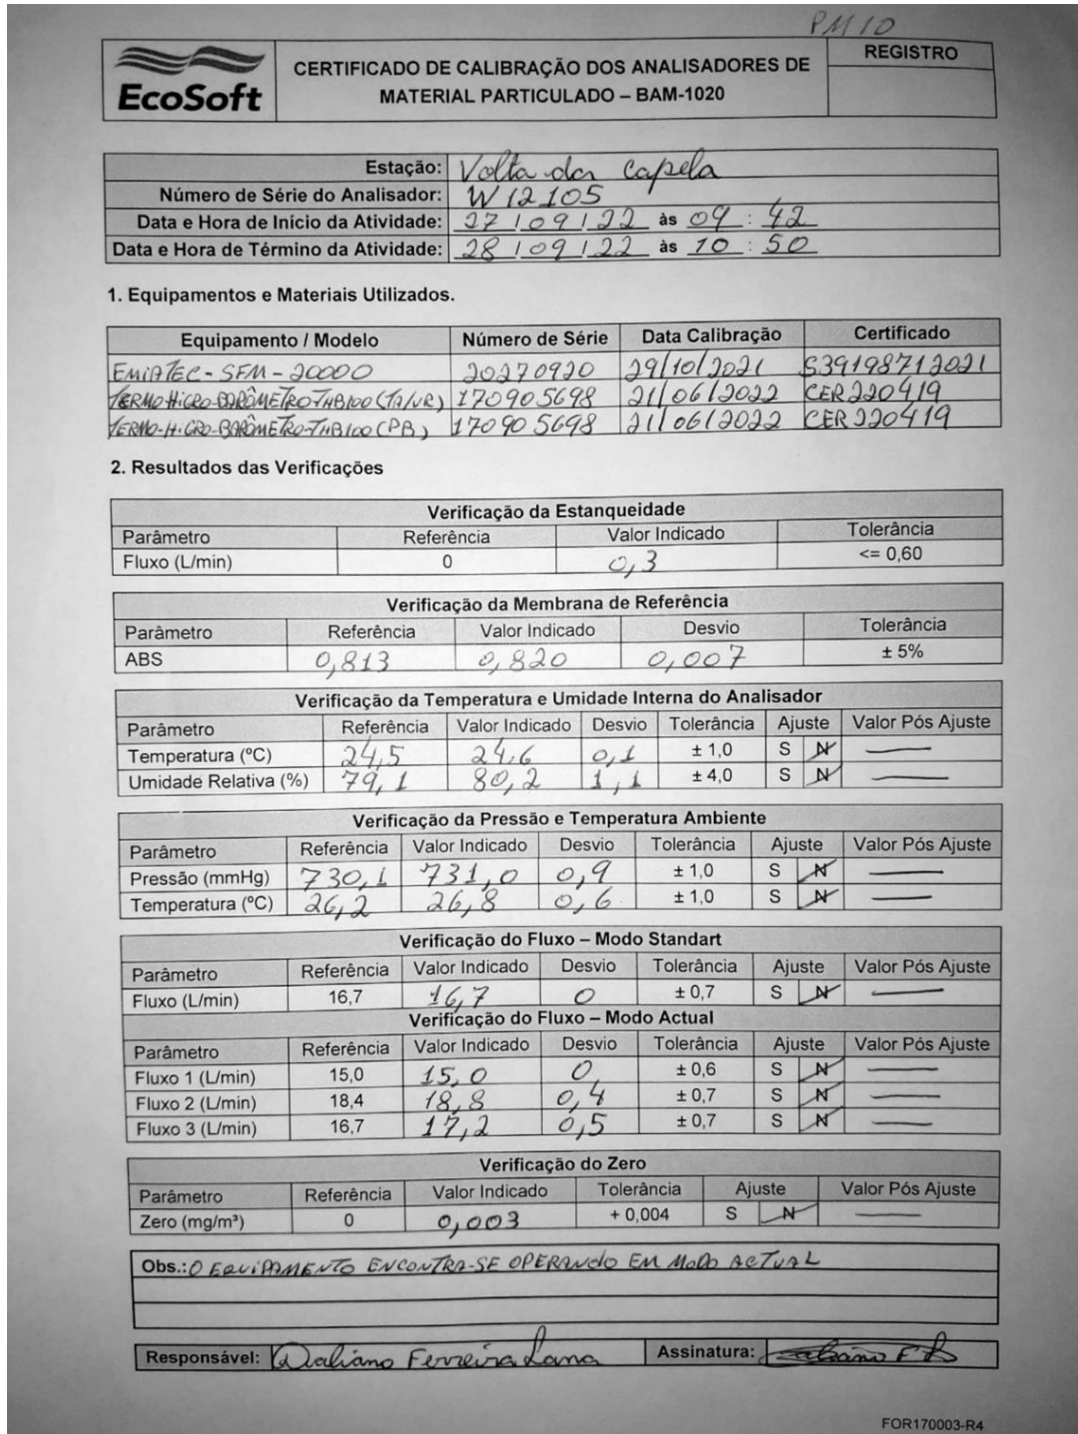 PM10
EcoSoft
CERTIFICADO DE CALIBRAÇÃO DOS ANALISADORES DE MATERIAL PARTICULADO – BAM-1020
REGISTRO
Estação: Volta da Capela
Número de Série do Analisador: W12105
Data e Hora de Início da Atividade: 27/09/22 às 09:42
Data e Hora de Término da Atividade: 28/09/22 às 10:50
1. Equipamentos e Materiais Utilizados.
Equipamento / Modelo Número de Série Data Calibração Certificado
EMIATEC-SFM-20000 20270920 29/10/2021 S39198712021
TERMO-HIGRO-BARÔMETRO-THB100(TA/UR) 170905698 21/06/2022 CER220419
TERMO-HIGRO-BARÔMETRO-THB100(PB) 170905698 21/06/2022 CER220419
2. Resultados das Verificações
Verificação da Estanqueidade
Parâmetro Referência Valor Indicado Tolerância
Fluxo (L/min) 0 0,3 <= 0,60
Verificação da Membrana de Referência
Parâmetro Referência Valor Indicado Desvio Tolerância
ABS 0,813 0,820 0,007 ± 5%
Verificação da Temperatura e Umidade Interna do Analisador
Parâmetro Referência Valor Indicado Desvio Tolerância Ajuste Valor Pós Ajuste
Temperatura (ºC) 24,5 24,6 0,1 ± 1,0 S N —
Umidade Relativa (%) 79,1 80,2 1,1 ± 4,0 S N —
Verificação da Pressão e Temperatura Ambiente
Parâmetro Referência Valor Indicado Desvio Tolerância Ajuste Valor Pós Ajuste
Pressão (mmHg) 730,1 731,0 0,9 ± 1,0 S N —
Temperatura (ºC) 26,2 26,8 0,6 ± 1,0 S N —
Verificação do Fluxo – Modo Standart
Parâmetro Referência Valor Indicado Desvio Tolerância Ajuste Valor Pós Ajuste
Fluxo (L/min) 16,7 16,7 0 ± 0,7 S N —
Verificação do Fluxo – Modo Actual
Parâmetro Referência Valor Indicado Desvio Tolerância Ajuste Valor Pós Ajuste
Fluxo 1 (L/min) 15,0 15,0 0 ± 0,6 S N —
Fluxo 2 (L/min) 18,4 18,8 0,4 ± 0,7 S N —
Fluxo 3 (L/min) 16,7 17,2 0,5 ± 0,7 S N —
Verificação do Zero
Parâmetro Referência Valor Indicado Tolerância Ajuste Valor Pós Ajuste
Zero (mg/m³) 0 0,003 + 0,004 S N —
Obs.: O EQUIPAMENTO ENCONTRA-SE OPERANDO EM MODO ACTUAL
Responsável: Daliano Ferreira Lana Assinatura:
FOR170003-R4